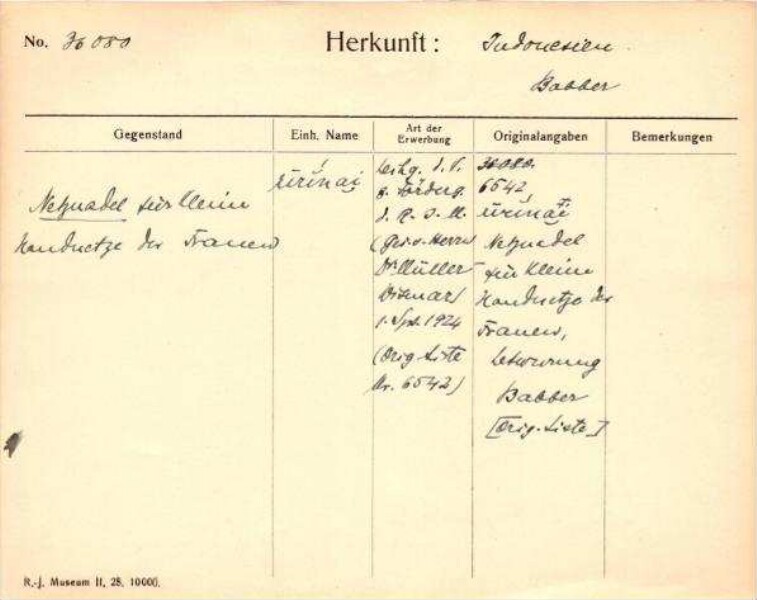 No. 36080 Herkunft: Indonesien
Babber
Gegenstand
Einh. Name
Art der
Erwerbung
Originalangaben
Bemerkungen
Netznadel für kleine
Handnetze der Frauen
Leihg. d. V.
z. Förderg.
d. R. J. M.
(Ges. v. Herrn
Dr. Müller
Wismar)
1. Spt. 1924
(Orig-Liste
Nr. 6542)
36080.
6542
Netznadel
für kleine
Handnetze der
Frauen,
Babber
[Orig.-Liste]
R.-J. Museum II, 28. 10000.